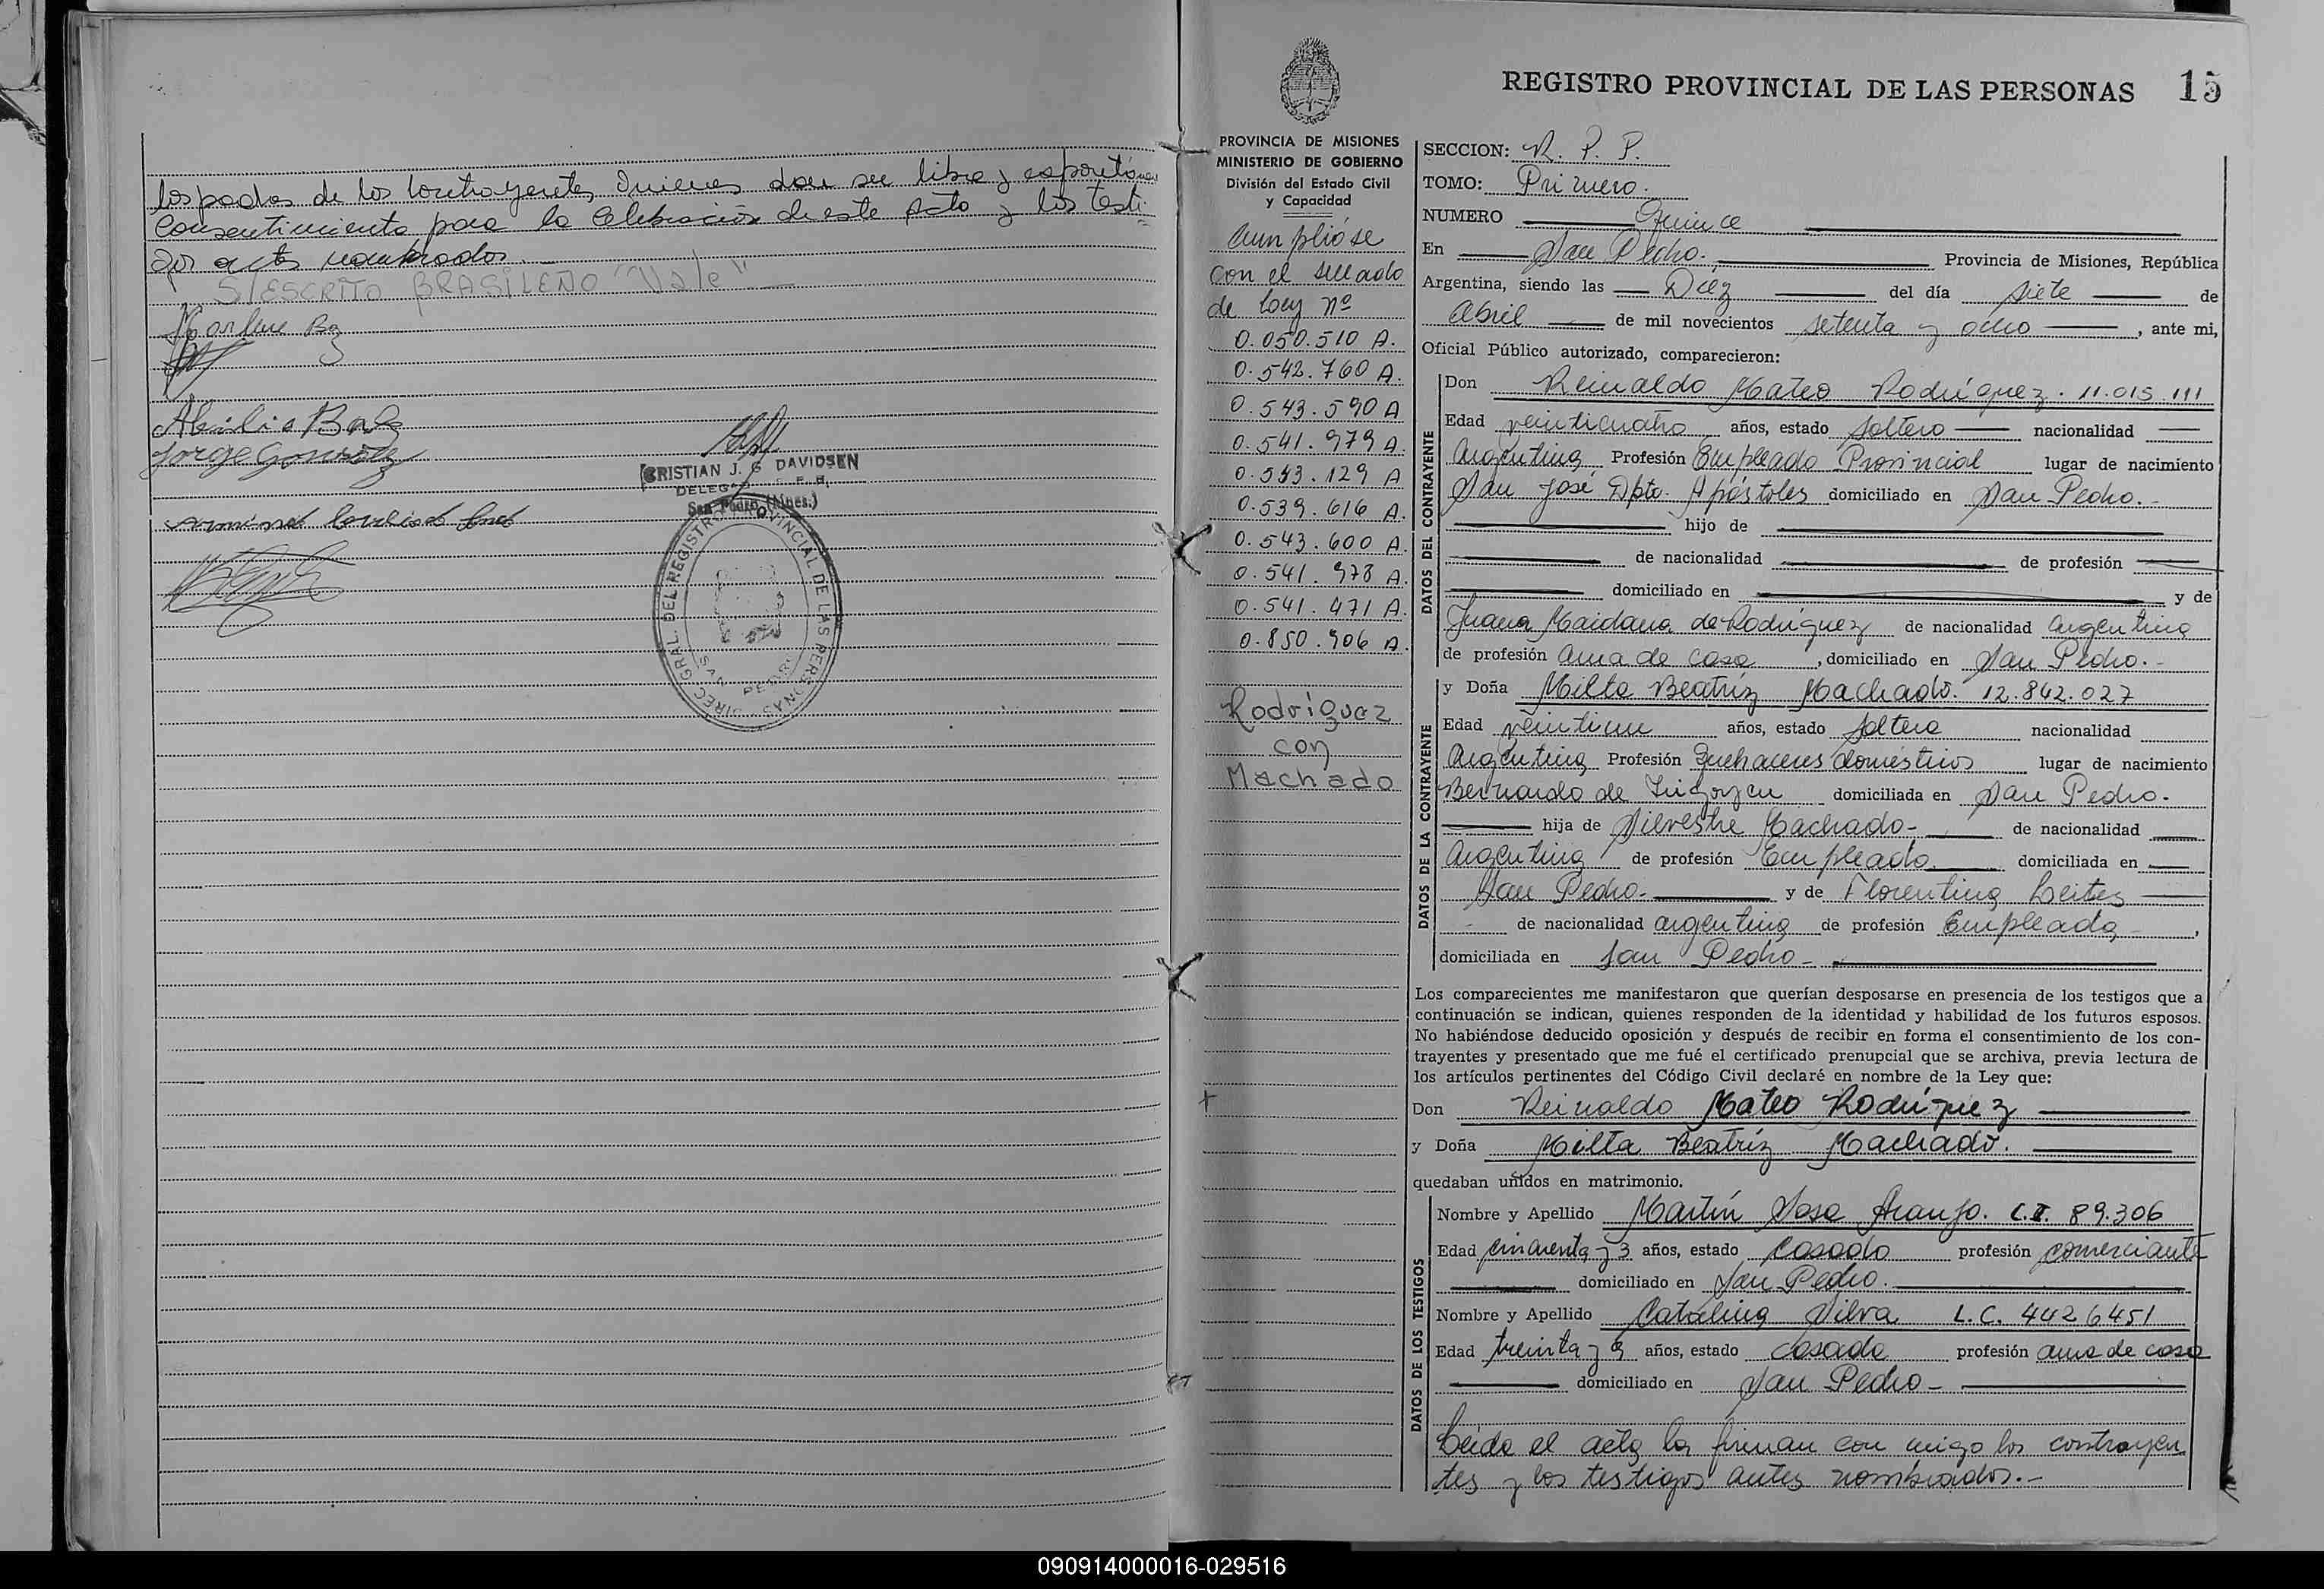 los padres de los contrayentes, quienes dan su libre y espontáneo
Consentimiento para la Celebración de este Acto y los testi-
gos antes nombrados.-
S/ESCRITO BRASILEÑO "Vale" -
Marlene
Abilio
Jorge González
CRISTIAN J. G DAVIDSEN
DELEG
San Pedro (Mnes.)
DIREC GRAL. DEL REGISTRO PROVINCIAL DE LAS PERSONAS
SAN PEDRO
REGISTRO PROVINCIAL DE LAS PERSONAS 15
PROVINCIA DE MISIONES
MINISTERIO DE GOBIERNO
División del Estado Civil
y Capacidad
Cumplióse
con el sellado
de Ley nº
0.050.510 A.
0.542.760 A.
0.543.590 A
0.541.979 A.
0.543.129 A
0.539.616 A.
0.543.600 A.
0.541.978 A.
0.541.471 A.
0.850.906 A.
Rodríguez
con
Machado
SECCION: R. P. P.
TOMO: Primero.
NUMERO Quince
En San Pedro. Provincia de Misiones, República
Argentina, siendo las Diez del día siete de
Abril de mil novecientos setenta y ocho , ante mi,
Oficial Público autorizado, comparecieron:
DATOS DEL CONTRAYENTE
Don Reinaldo Mateo Rodríguez. 11.015.111
Edad veinticuatro años, estado soltero nacionalidad
Argentina Profesión Empleado Provincial lugar de nacimiento
San José Dpto. Apóstoles domiciliado en San Pedro.-
hijo de
de nacionalidad de profesión
domiciliado en y de
Juana Maidana de Rodríguez de nacionalidad argentina
de profesión ama de casa , domiciliado en San Pedro.-
DATOS DE LA CONTRAYENTE
y Doña Milta Beatríz Machado. 12.842.027
Edad veintiun años, estado soltera nacionalidad
Argentina Profesión Quehaceres domésticos lugar de nacimiento
Bernardo de Irigoyen domiciliada en San Pedro.
hija de Silvestre Machado- de nacionalidad
Argentina de profesión Empleado. domiciliada en
San Pedro.- y de Florentina Leites
de nacionalidad argentina de profesión Empleada - ,
domiciliada en San Pedro-
Los comparecientes me manifestaron que querían desposarse en presencia de los testigos que a
continuación se indican, quienes responden de la identidad y habilidad de los futuros esposos.
No habiéndose deducido oposición y después de recibir en forma el consentimiento de los con-
trayentes y presentado que me fué el certificado prenupcial que se archiva, previa lectura de
los artículos pertinentes del Código Civil declaré en nombre de la Ley que:
Don Reinaldo Mateo Rodríguez
y Doña Milta Beatríz Machado.
quedaban unidos en matrimonio.
DATOS DE LOS TESTIGOS
Nombre y Apellido Martín Sosa Araujo. C.I. 89.306
Edad cincuenta y 3 años, estado Casado profesión comerciante
domiciliado en San Pedro.
Nombre y Apellido Catalina Silva L.C. 4426451
Edad treinta y 9 años, estado casada profesión ama de casa
domiciliado en San Pedro-
Leida el acta la firman con migo los contrayen
tes y los testigos antes nombrados.-
090914000016-029516